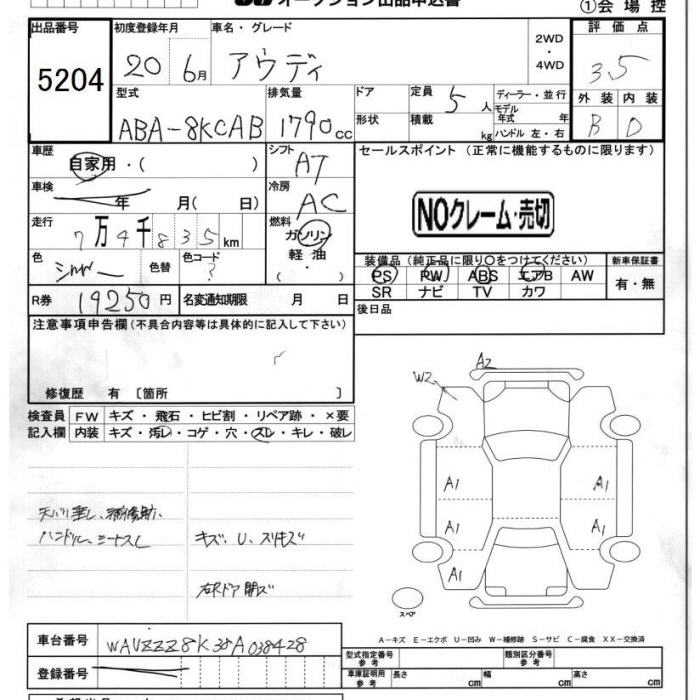 オークション出品申込書
①会場控
出品番号
5204
初度登録年月
20 6月
車名・グレード
アウディ
2WD
・
4WD
評価点
3.5
外装 内装
B D
型式
ABA-8KCAB
排気量
1790cc
ドア
形状
定員 5人
積載 kg
ディーラー・並行
モデル
年式 年
ハンドル 左・右
車歴
自家用・( )
車検
年 月( 日)
走行
7万4千835km
色
シルバー
色替
色コード
?
シフト
AT
冷房
AC
燃料
ガソリン
・
軽油
( )
R券 19250円
名変通知期限 月 日
セールスポイント (正常に機能するものに限ります)
NOクレーム・売切
装備品(純正品に限り○をつけてください)
PS PW ABS エアB AW
SR ナビ TV カワ
新車保証書
有・無
後日品
注意事項申告欄(不具合内容等は具体的に記入して下さい)
修復歴 有 〔箇所 〕
検査員
記入欄
FW キズ・飛石・ヒビ割・リペア跡・×要
内装 キズ・汚レ・コゲ・穴・スレ・キレ・破レ
天バリ垂レ、補修跡、
ハンドル、シートスレ
キズ、U、スリキズ
右Rドア開ズ
A2
W2
A1 A1
A1 A1
A1
スペア
A-キズ E-エクボ U-凹み W-補修跡 S-サビ C-腐食 XX-交換済
車台番号 WAUZZZ8K38A038428
登録番号
型式指定番号
参考
類別区分番号
参考
車庫証明用
参考
長さ cm 幅 cm 高さ cm